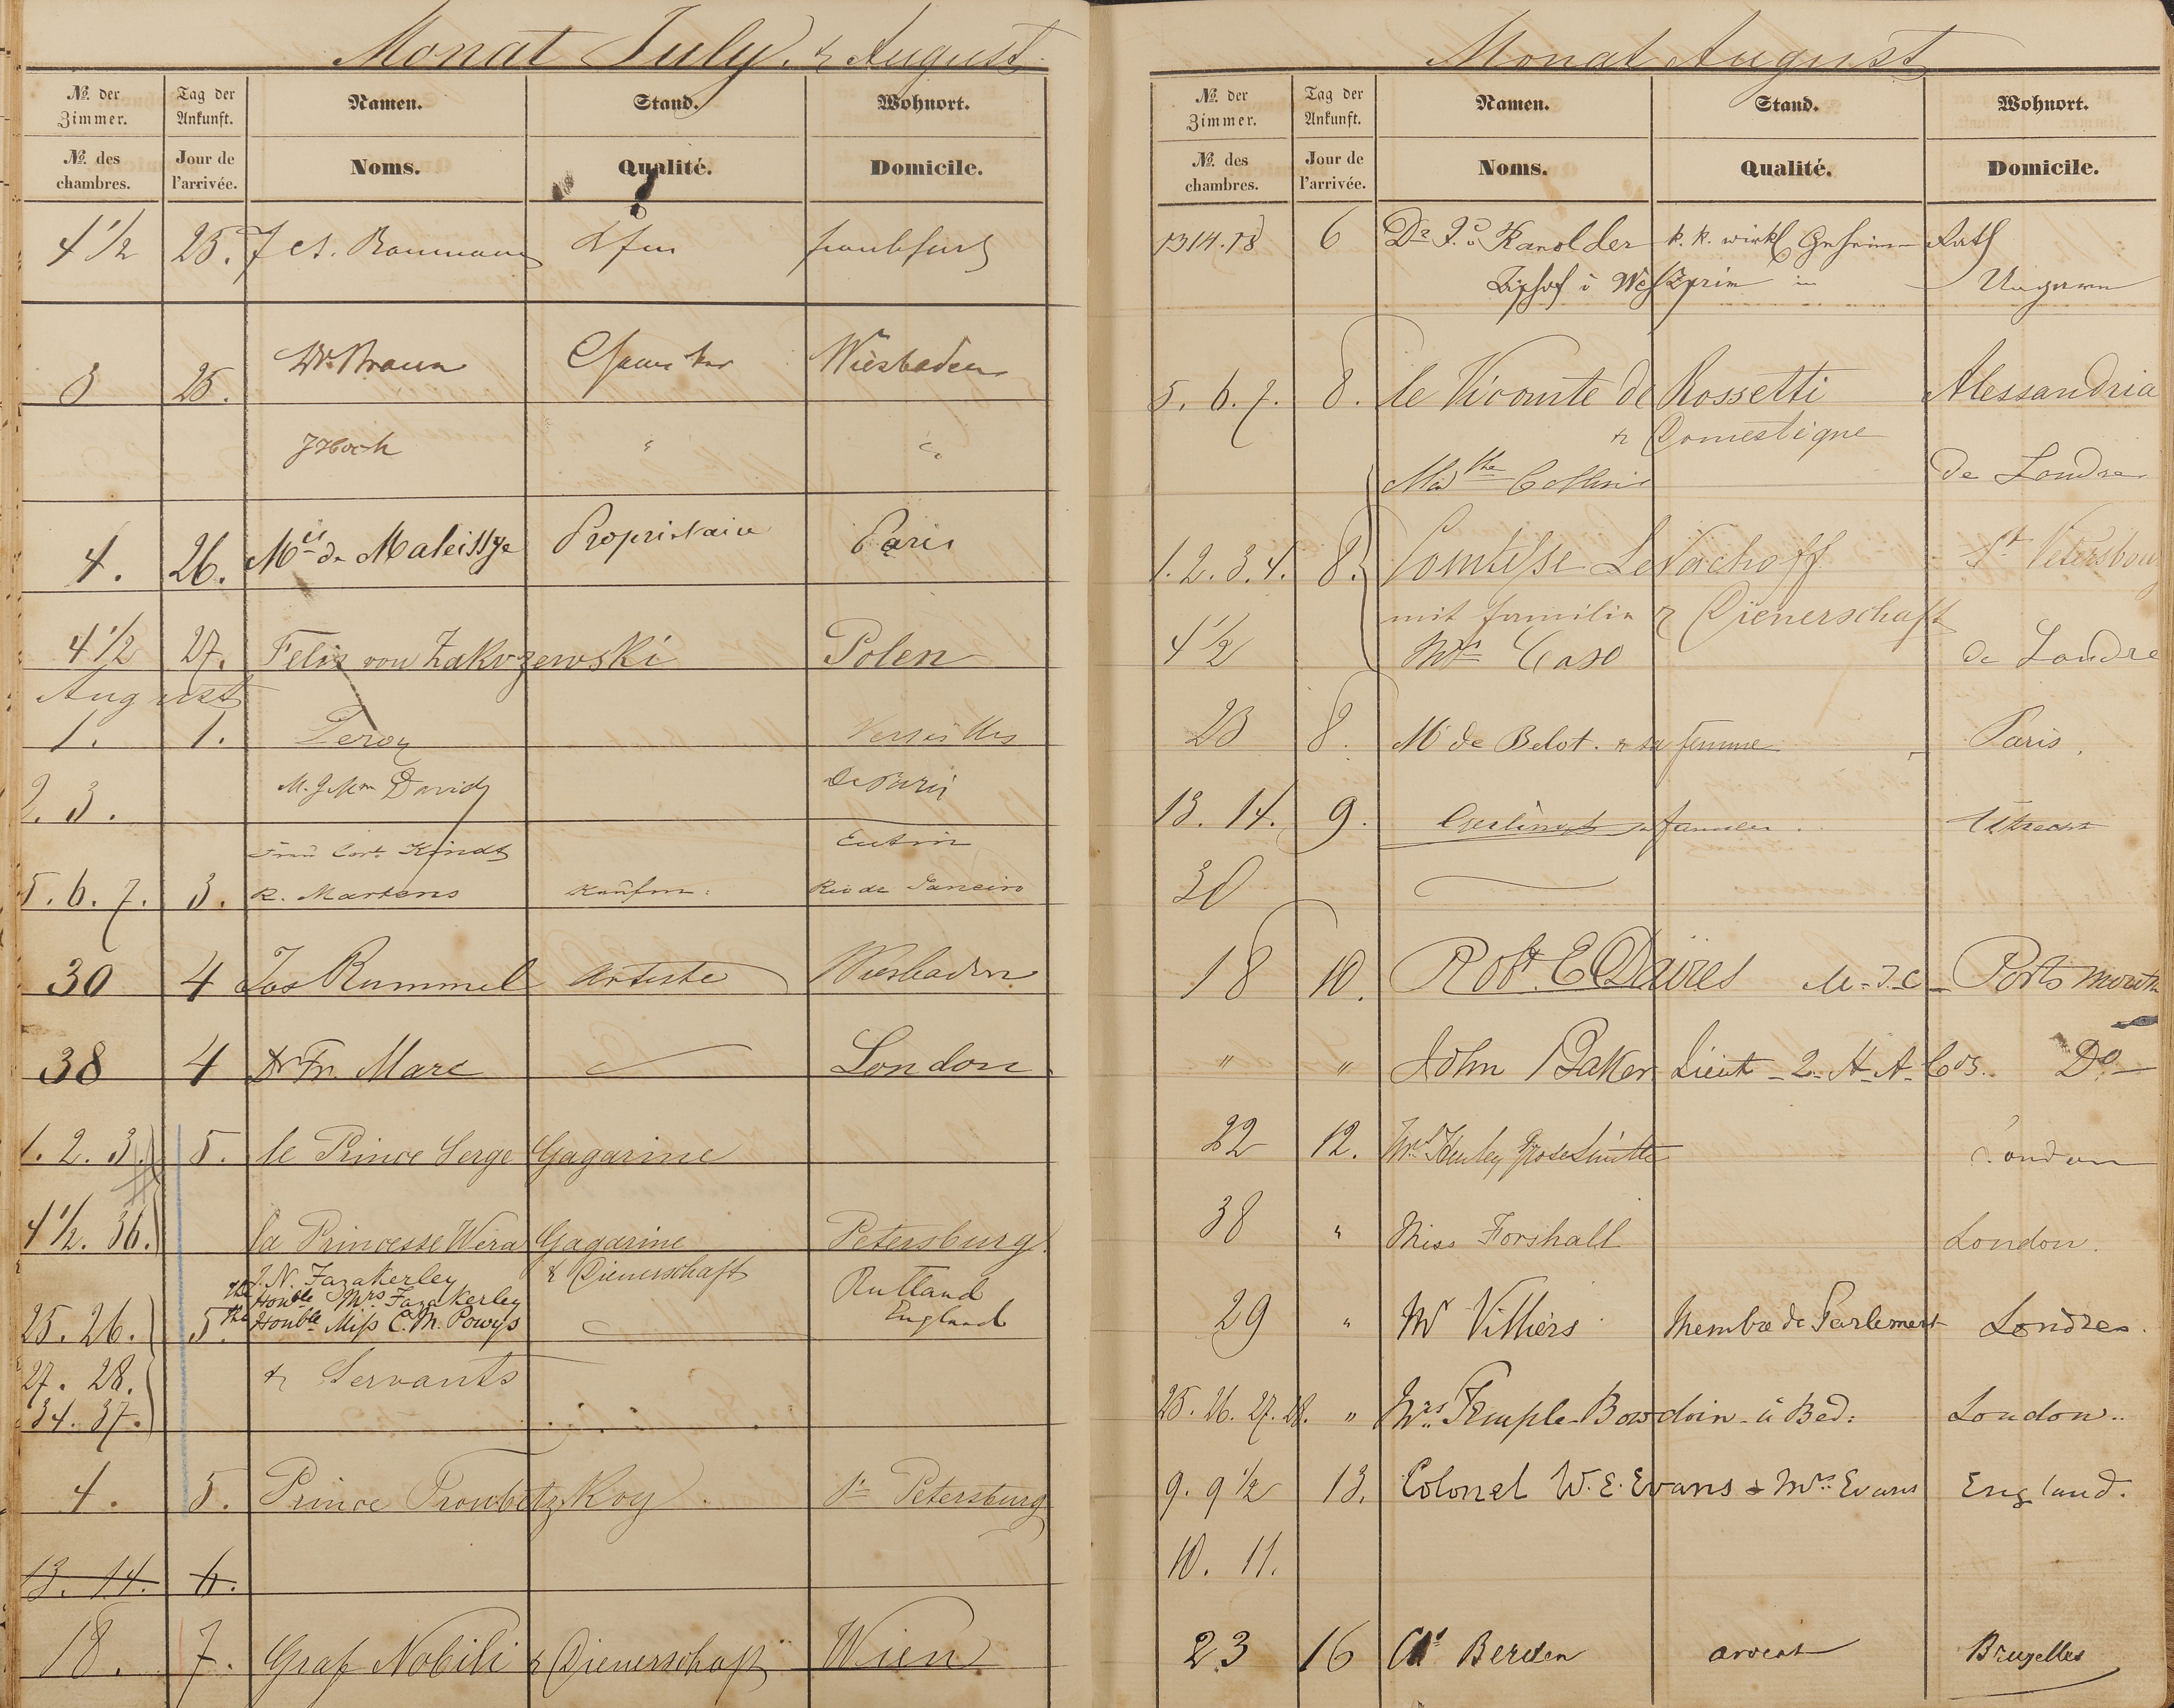 Monat July & August
No. der Zimmer. Tag der Ankunft. Namen. Stand. Wohnort.
No. des chambres. Jour de l'arrivée. Noms. Qualité. Domicile.
4 1/2 25. Frankfurt
3 25. Dr. Braun Wiesbaden
J Hoch " "
4. 26. Mis de Maleissye Propriétaire Paris
4 1/2 27. Felix von Zakrzewski Polen
August
1. 1. Leroy Versailles
2. 3. David de Paris
Kindt Eutin
5. 6. 7. 3. R. Martens Kaufm: Rio de Janeiro
30 4 Jos Rummel Artiste Wiesbaden
38 4 Dr Fr. Marc London
1. 2. 3. 5. le Prince Serge Gagarine
4 1/2. 36. la Princesse Wera Gagarine Petersburg
& Dienerschaft
J. N. Fazakerley Rutland
The Honble Mrs Fazakerley England
25. 26. 5 The Honble Miss C. M. Powys
27. 28. & Servants
34. 37.
4. 5. Prince Troubetzkoy St Petersburg
13. 14. 6.
18. 7. Graf Nobili & Dienerschaft Wien
Monat August
No. der Zimmer. Tag der Ankunft. Namen. Stand. Wohnort.
No. des chambres. Jour de l'arrivée. Noms. Qualité. Domicile.
13 14. 18 6 Dr J. Ranolder k. k. wirkl. Geheim Rath
Bischof Weszprim in Ungarn
5. 6. 7. 8. le Vicomte de Rossetti Alessandria
& Domestique
de Londre
1. 2. 3. 4. 8. Comtesse Levachoff St Petersbourg
mit familie & Dienerschaft
4 1/2 Caso de Londre
23 8. Mr de Belot. & sa femme Paris.
13. 14. 9. Utrecht
30
18 10. Robt. E Davies Portsmouth
" " John Baker Lieut - 2 - H - A - Do
22 12. London
38 " Miss Forshall London.
29 " Mr Villiers Membre de Parlement Londres.
25. 26. 27. 28. " Mrs Temple-Bowdoin London..
9. 9 1/2 13. Colonel W. E. Evans & Mrs Evans England.
10. 11.
23 16 Berden avocat Bruxelles